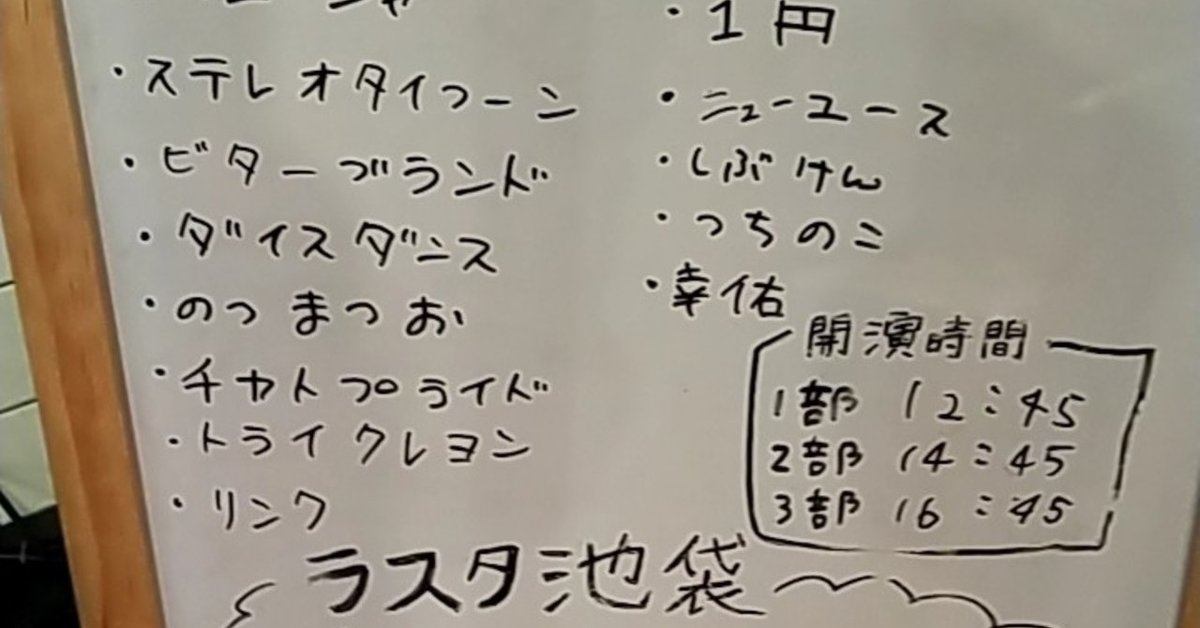 ・ステレオタイフーン
・ビターブランド
・ダイスダンス
・のつ まつお
・チャトプライド
・トライクレヨン
・リンク
・1円
・ニューユース
・しぶけん
・つちのこ
・幸佑
開演時間
1部 12:45
2部 14:45
3部 16:45
ラスタ池袋